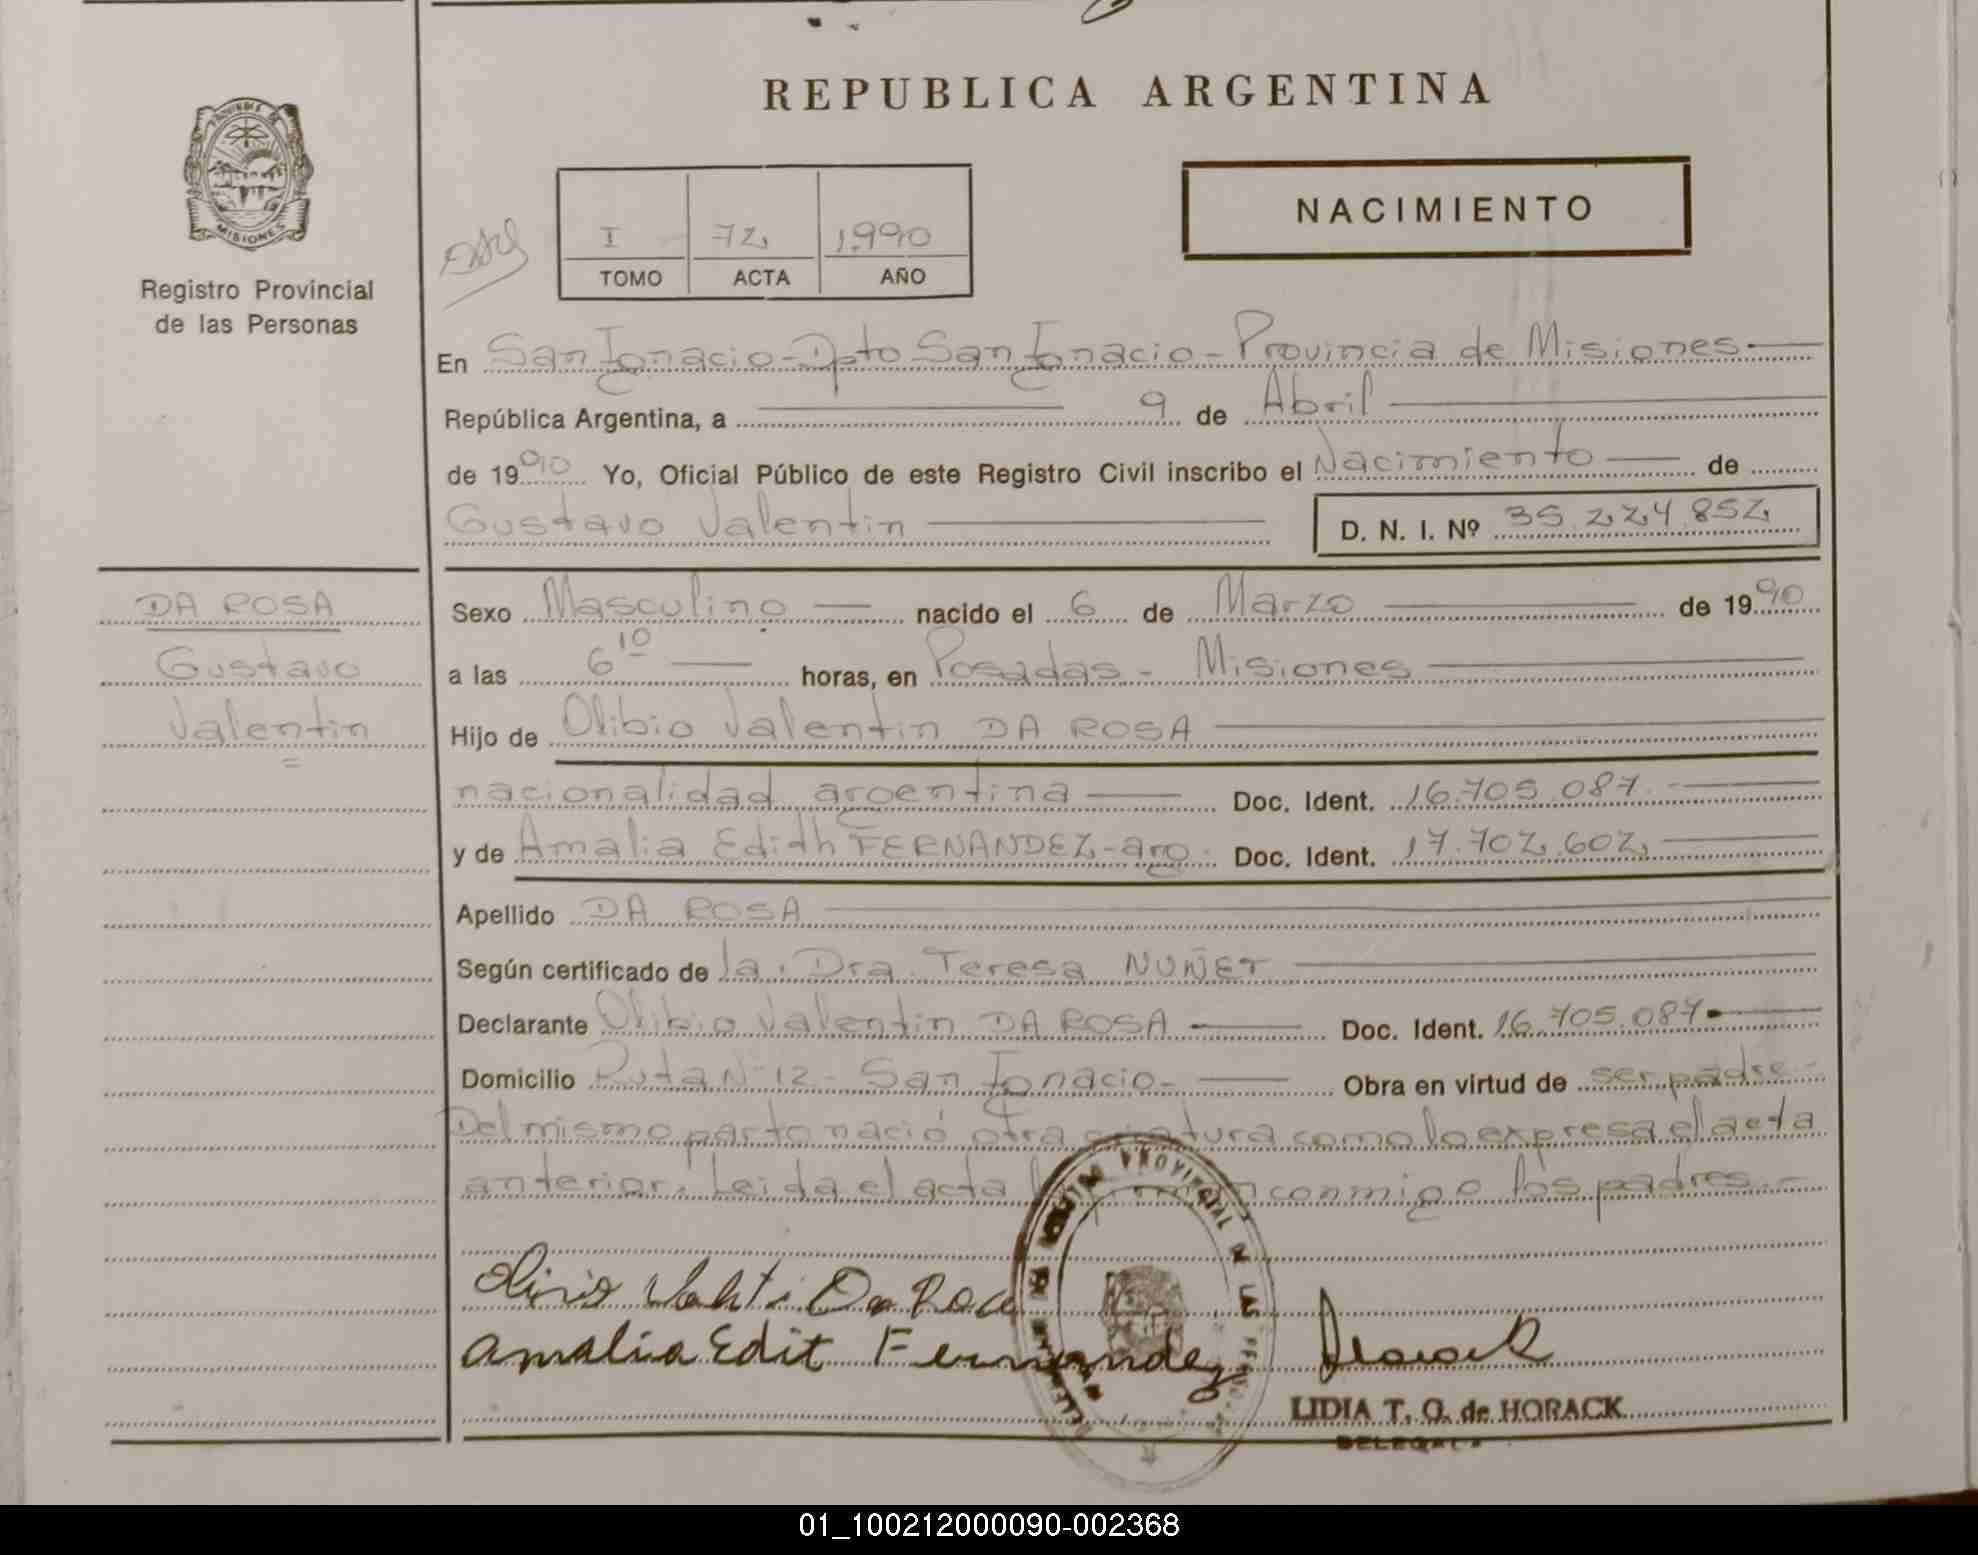 REPUBLICA ARGENTINA
PROVINCIA DE
MISIONES
Registro Provincial
de las Personas
I 72 1990
TOMO ACTA AÑO
NACIMIENTO
En San Ignacio - Dpto San Ignacio - Provincia de Misiones
República Argentina, a 9 de Abril
de 1990 Yo, Oficial Público de este Registro Civil inscribo el Nacimiento de
Gustavo Valentin D. N. I. Nº 35.224.852
DA ROSA
Gustavo
Valentin
Sexo Masculino nacido el 6 de Marzo de 1990
a las 6 10 horas, en Posadas - Misiones
Hijo de Olibio Valentin DA ROSA
nacionalidad argentina Doc. Ident. 16.705.087.
y de Amalia Edith FERNANDEZ - arg. Doc. Ident. 17.702.602
Apellido DA ROSA
Según certificado de la Dra. Teresa
Declarante Olibio Valentin DA ROSA Doc. Ident. 16.705.087
Domicilio Ruta Nº 12 - San Ignacio - Obra en virtud de ser padre.-
Del mismo parto nació otra criatura como lo expresa el acta
anterior. Leida el acta conmigo los padres.-
Da Rosa
Amalia Edit Fernandez Horack
LIDIA T. O. de HORACK
DELEGADA
01_100212000090-002368